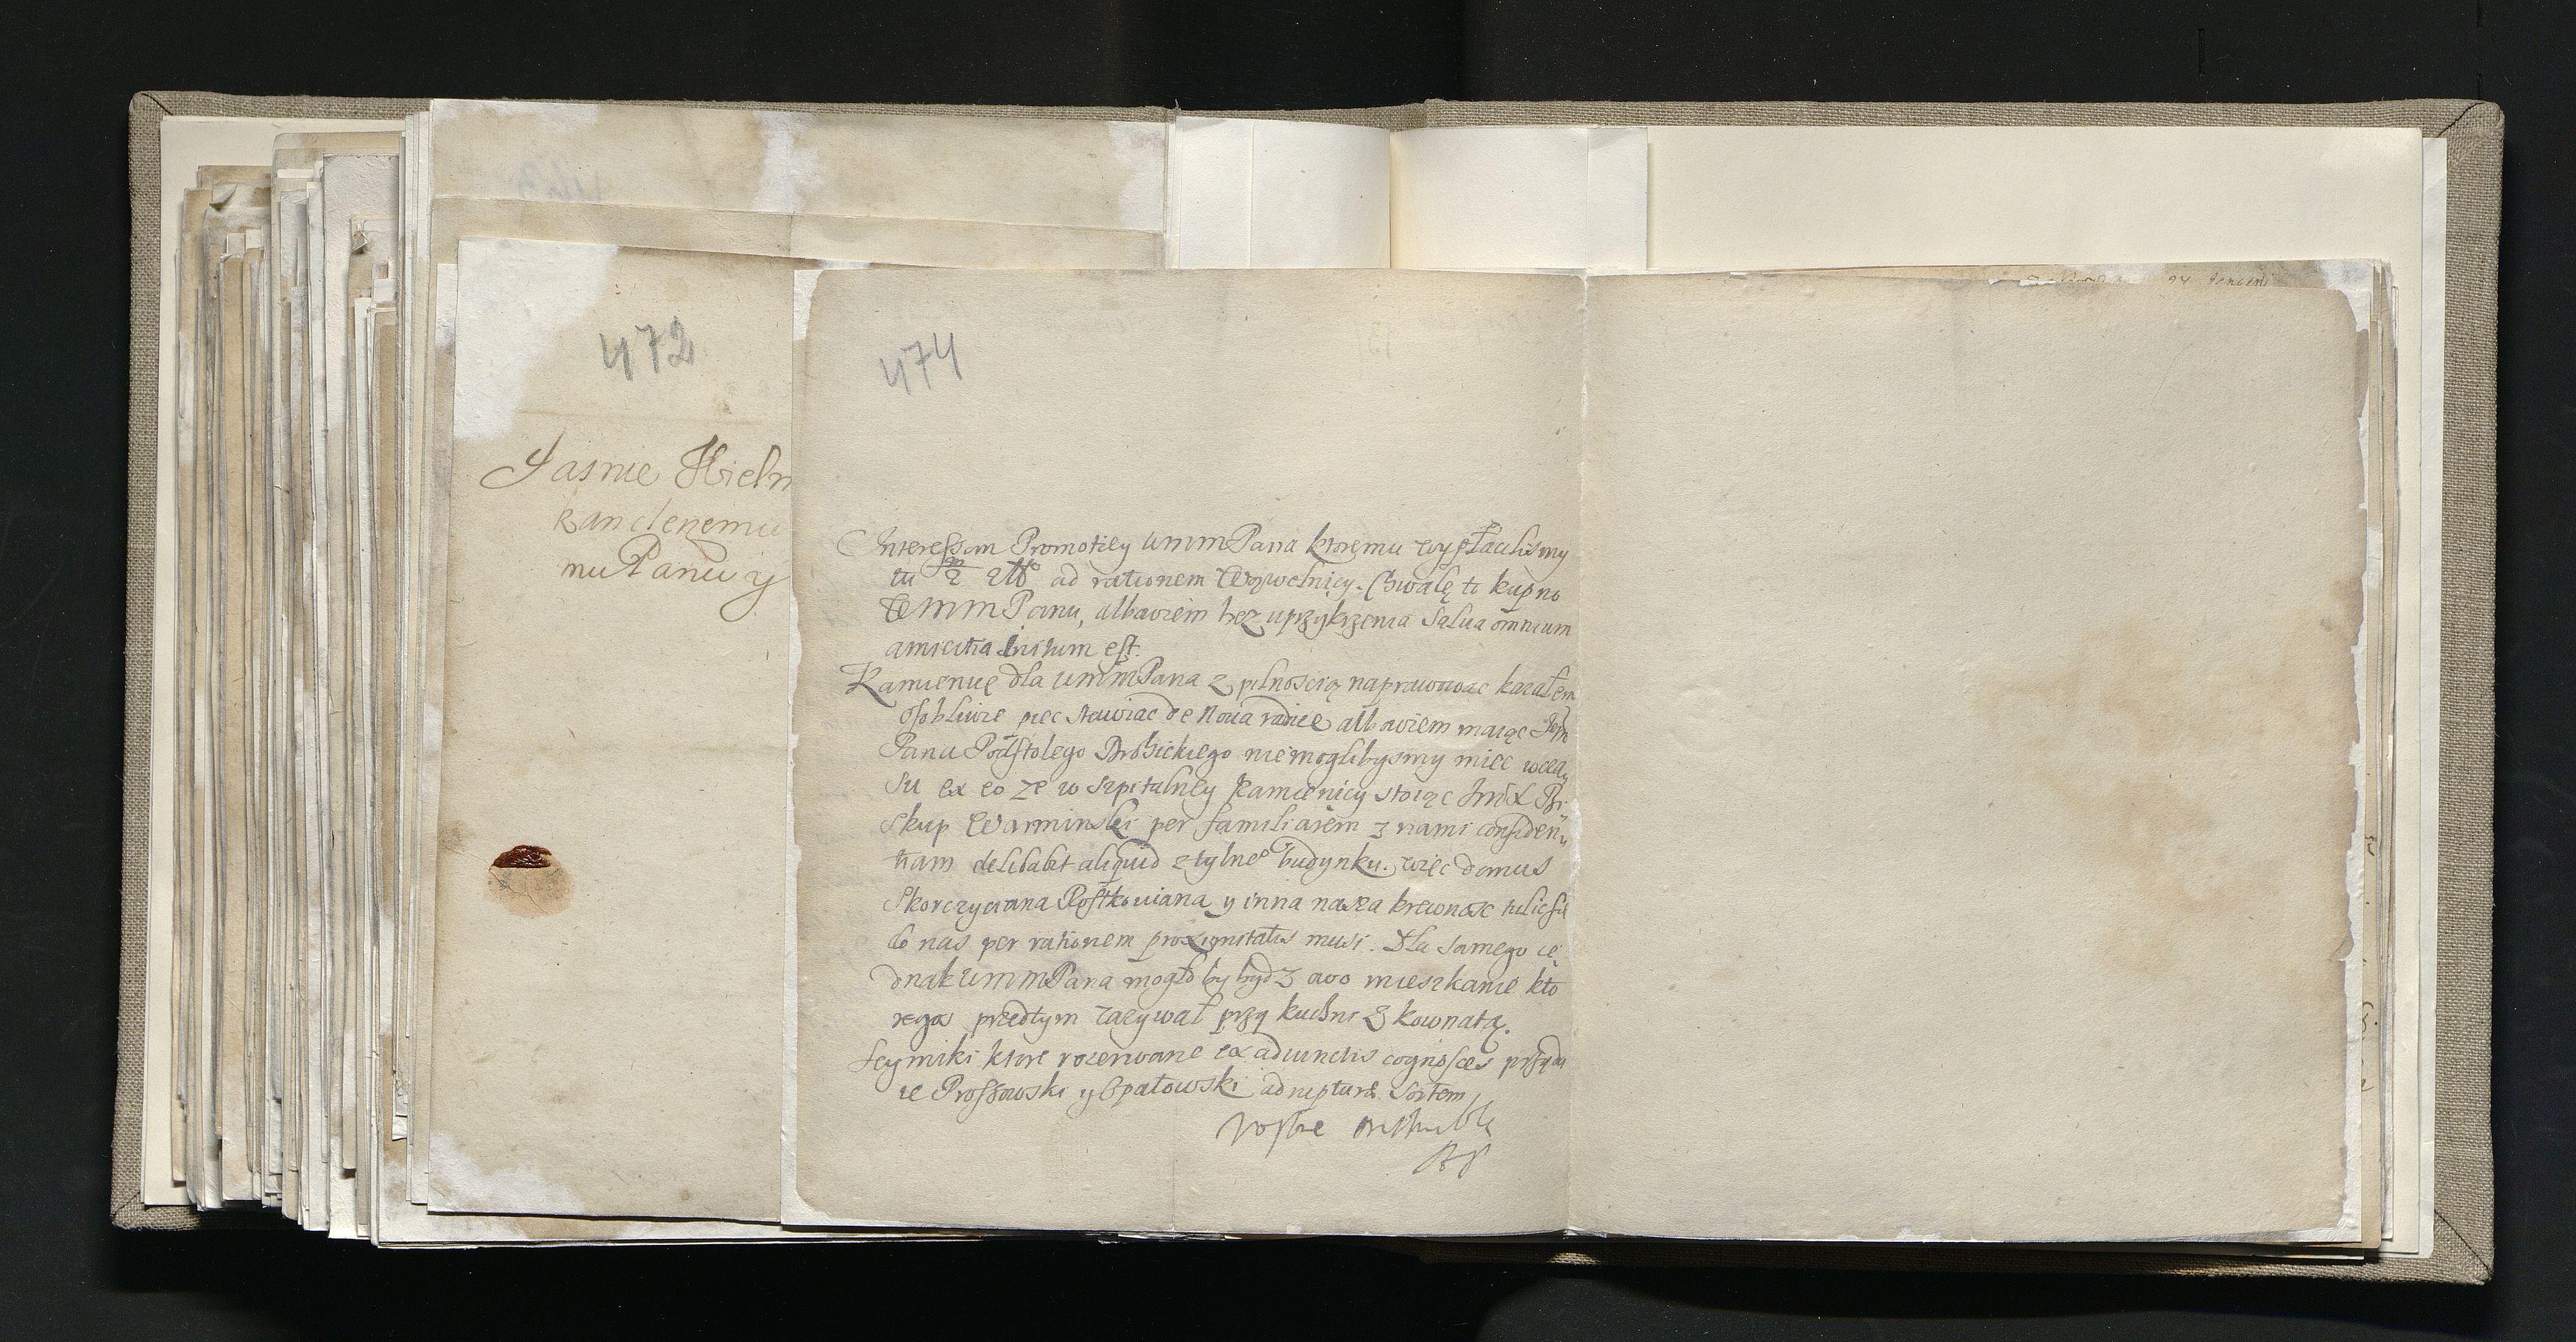 472
Jasnie Wielm
kanclerzemu
mu Panu y
474
Interessem Promotiey WMMPana ktoremu wysłalismy
tu ad rationem Wąwelnicy. Chwalę to kupno
WMMPanu, albowiem bez uprzykrzenia salua omnium
amicitia initum est.
Kamienicę dla WMMPana z pilnoscią naprawowac kazałem
osobliwie piec stawiac de noua radice albowiem maiąc
Pana Podstolego Drobickiego nie moglibysmy miec wcza
su ex eo ze w szpitalney kamienicy stoiąc JmX Bi
skup Warminski per familiarem z nami confiden
tiam delibabit aliquid z tylne° budynku. więc domus
Skorczyciana Rostkoviana y inna nasza krewnosc tulic się
do nas per rationem proximitatis musi. Dla samego ie
dnak WMMPana mogło by bydz owo mieszkanie kto
rego przedtym zazywał przy kuchni z kownatą.
Seymiki ktore rozerwane ex adiunctis cognosces
ie Proszowski y Opatowski ad sortem